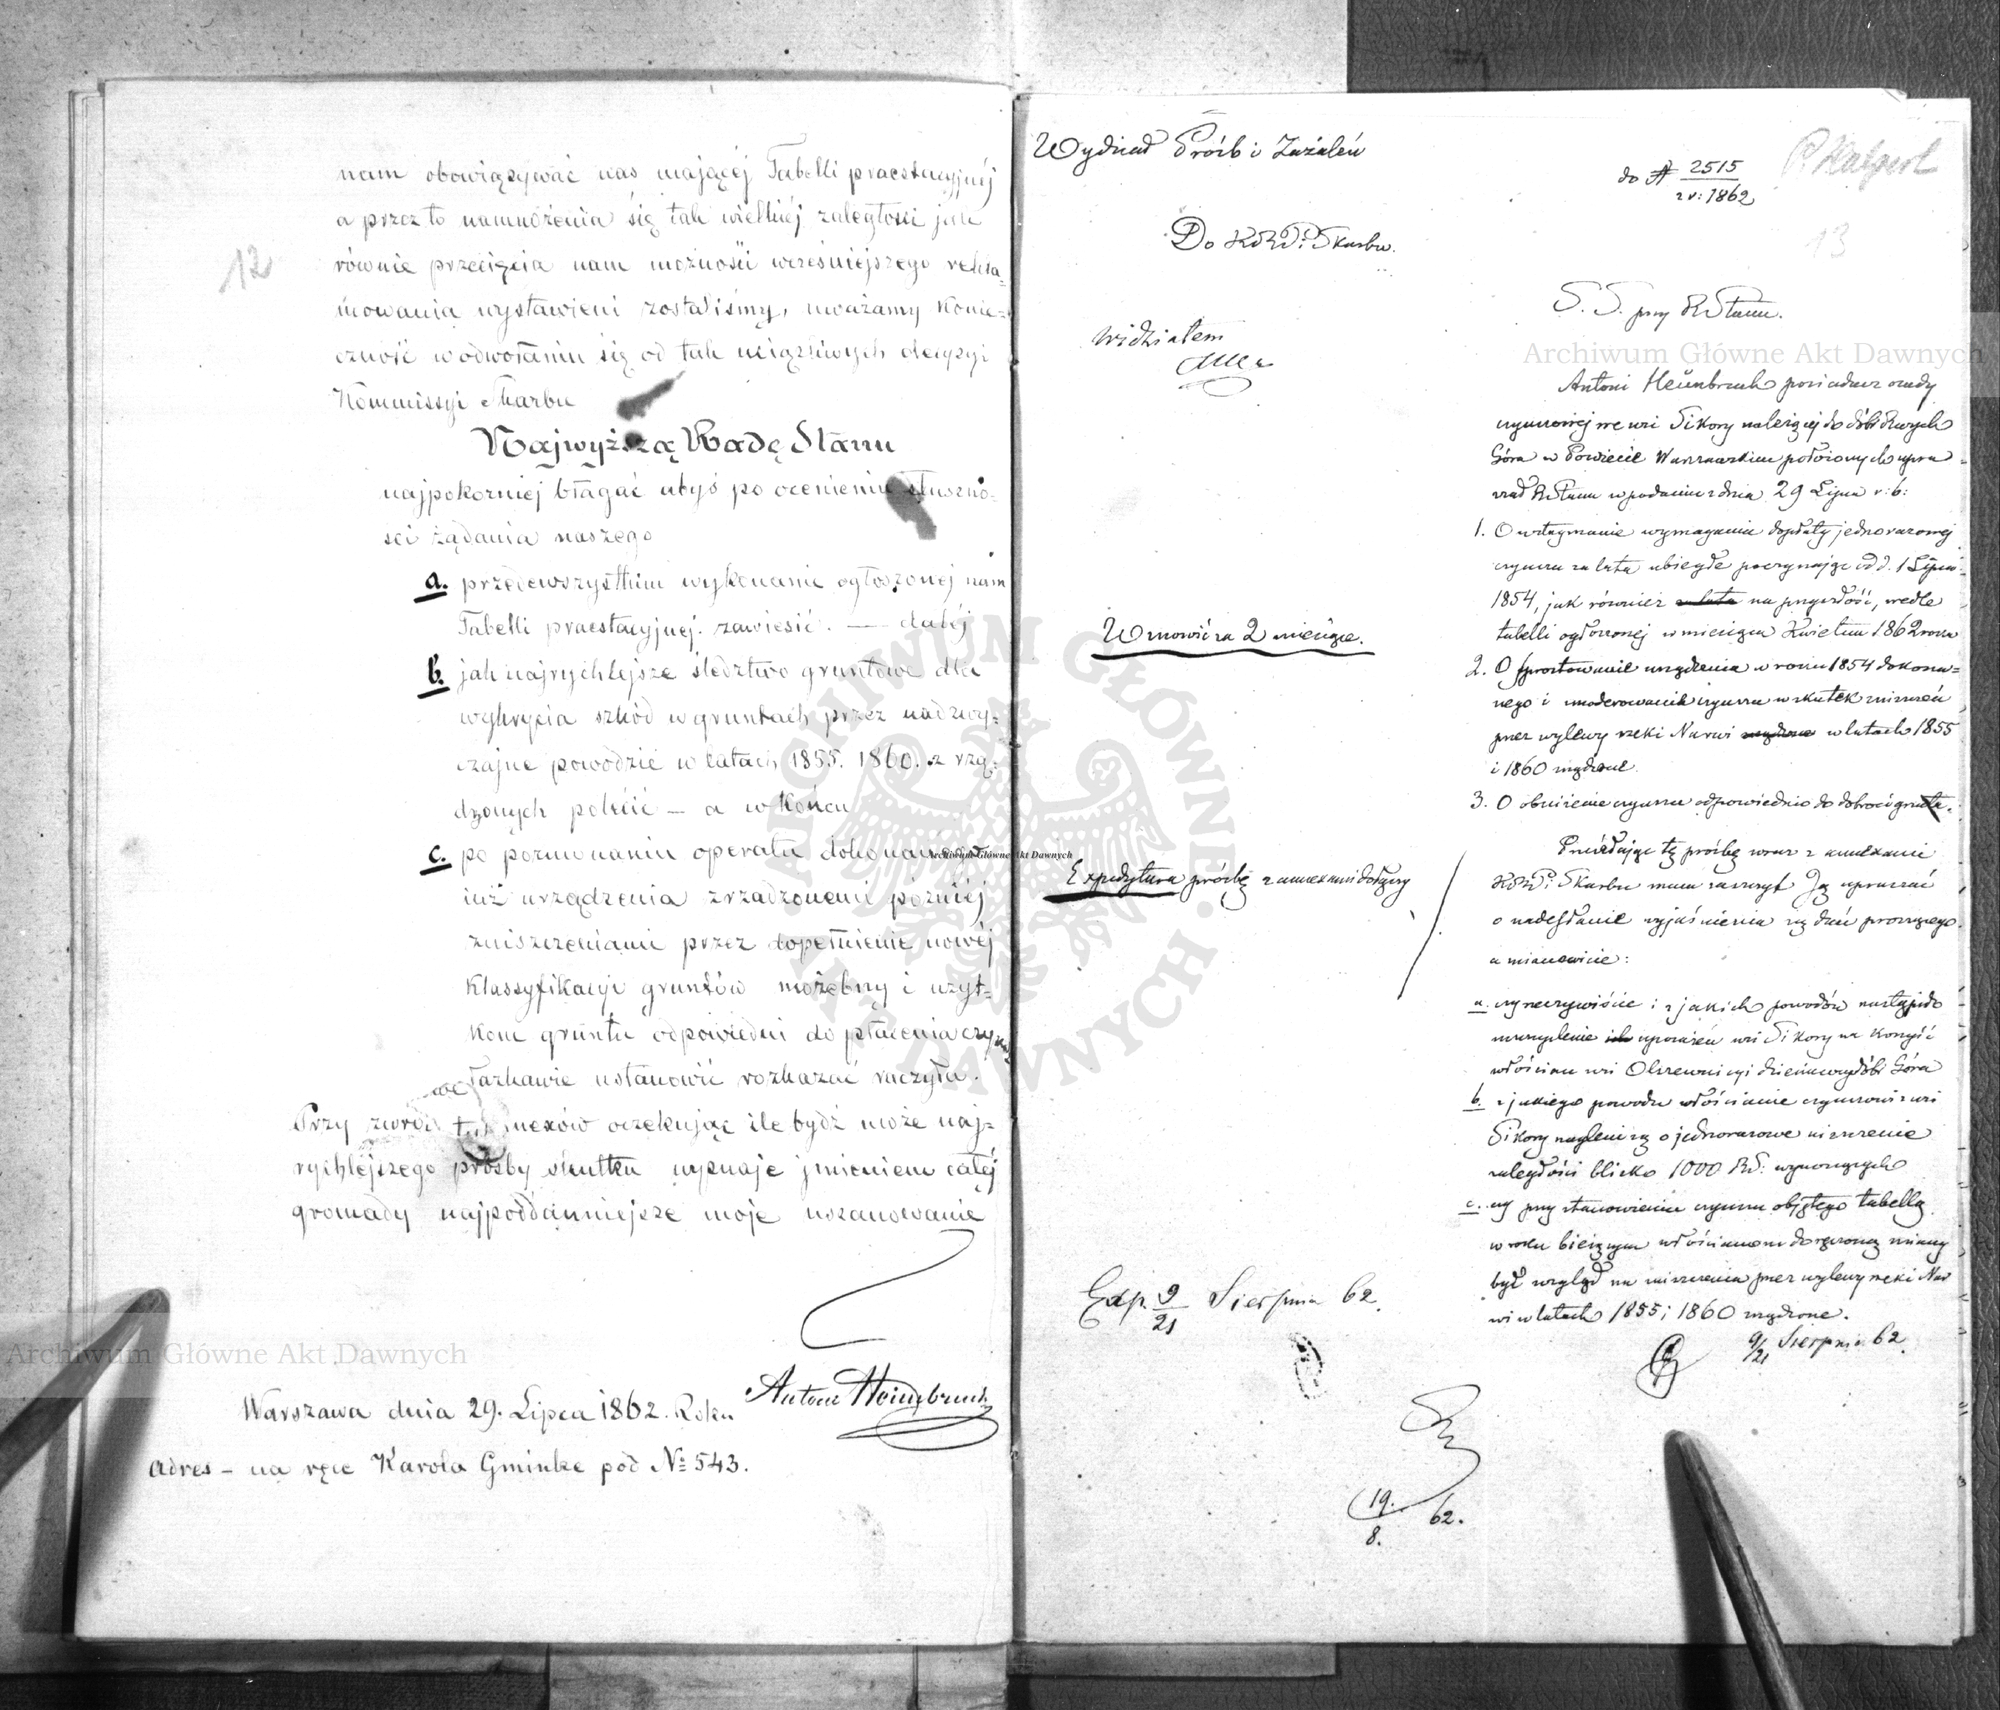 12
nam obowiązywać nas mającéj Tabelli praestacyjnéj
a przez to namnożenia się tak wielkiéj zaległości jak
równie przecięcia nam możności wcześniejszego rekla-
mowania wystawieni zostaliśmy, uważamy konie-
czność w odwołaniu się od tak uciążliwych decyzyi
Kommissyi Skarbu
Najwyższą Radę Stanu
najpokorniej błagać abyś po ocenieniu słuszno-
ści żądania naszego
a. przedewszystkim wykonanie ogłoszonéj nam
Tabelli praestacyjnej zawiesić. — daléj
b. jak najrychlejsze śledztwo gruntowe dla
wykrycia szkód w gruntach przez nadzwy-
czajne powodzie w latach 1855. 1860. zrzą-
dzonych polécić — a w końcu
c. po porównaniu operatu dokonanego
już urządzenia zrządzonemi późniéj
zniszczeniami przez dopełnienie nowéj
Klassyfikacyi gruntów możebny i użyt-
kom gruntu odpowiedni do płacenia czynsz
łaskawie ustanowić rozkazać raczyła.
Przy zwróc annexów oczekując ile bydź może naj-
rychlejszego prośby skutku wyznaje jmieniem całéj
gromady najpoddanniejsze moje uszanowanie
Antoni Heinebruch
Warszawa dnia 29. Lipca 1862. Roku
adres – na ręce Karola Gminke pod № 543.
Wydział Próśb i Zażaleń
do № 2515
z r: 1862
13
Do KRP i Skarbu.
S. S. przy RStanu.
Widziałem
Antoni Heinebruch posiadacz osady
czynszowéj we wsi Sikory należącéj do dóbr Rządowych
Góra w Powiecie Warszawskim położonych upra-
szał RStanu w podaniu z dnia 29 Lipca r: b:
1. O wstrzymanie wymagania dopłaty jednorazowéj
czynszu za lata ubiegłe poczynając od d. 1 Lipca
1854, jak również na przyszłość, wedle
tabelli ogłoszonéj w miesiącu Kwietniu 1862 roku
2. O sprostowanie urządzenia w roku 1854 dokona-
nego i umoderowanie czynszu w skutek zniszczeń
przez wylewy rzeki Narwi w latach 1855
i 1860 zrządzone.
3. O obniżenie czynszu odpowiednio do dobroci gruntu.
Wnowić za 2 miesiące.
Przesyłając tę prośbę wraz z annexami
KRP i Skarbu mam zaszczyt Ją upraszać
o nadesłanie wyjaśnienia żądań proszącego
a mianowicie:
Expedytura prośbę z annexami dołączy
a. czy rzeczywiście i z jakich powodów nastąpiło
uszczuplenie uposażeń wsi Sikory na korzyść
włościan wsi Olszewnicy i dzierżawy dóbr Góra
b. z jakiego powodu włościanie czynszowi z wsi
Sikory nagleni są o jednorazowe uiszczenie
zaległości blisko 1000 RS. wynoszących
c. czy przy stanowieniu czynszu objętego tabellą
w roku bieżącym włościanom doręczoną miany
był wzgląd na zniszczenia przez wylewy rzeki Nar
wi w latach 1855 i 1860 zrządzone.
Exp. 9/21 Sierpnia 62.
9/21 Sierpnia 62.
19./8. 62.
Archiwum Główne Akt Dawnych
Archiwum Główne Akt Dawnych
Archiwum Główne Akt Dawnych
ARCHIWUM GŁÓWNE AKT DAWNYCH